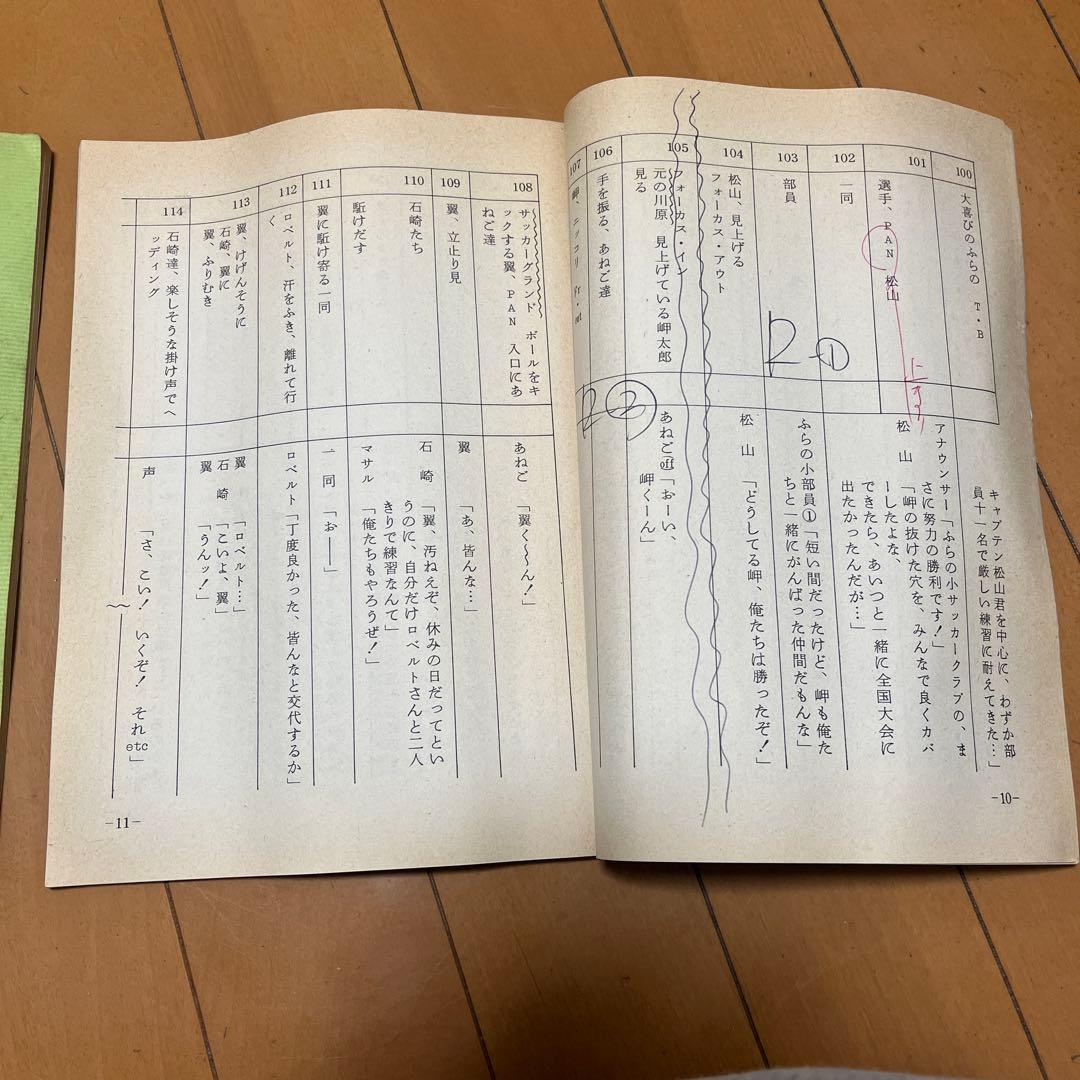 100
大喜びのふらの　T・B
キャプテン松山君を中心に、わずか部
員十一名で厳しい練習に耐えてきた…」
アナウンサー「ふらの小サッカークラブの、ま
さに努力の勝利です！」
101
選手、PAN　松山
松　山　「岬の抜けた穴を、みんなで良くカバ
ーしたよな、
できたら、あいつと一緒に全国大会に
出たかったんだが…」
102
一同
103
部員
ふらの小部員①「短い間だったけど、岬も俺た
ちと一緒にがんばった仲間だもんな」
①
104
松山、見上げる
フォーカス・アウト
松　山　「どうしてる岬、俺たちは勝ったぞ！」
105
フォーカス・イン
元の川原　見上げている岬太郎
見る
あねご(off)「おーい、
岬くーん」
②
106
手を振る、あねご達
107
岬、ニッコリ　Fr・out
-10-
108
サッカーグランド　ボールをキ
ックする翼、PAN　入口にあ
ねご達
あねご　「翼く〜ん！」
109
翼、立止り見
翼　「あ、皆んな…」
110
石崎たち
駈けだす
石　崎　「翼、汚ねえぞ、休みの日だってとい
うのに、自分だけロベルトさんと二人
きりで練習なんて」
マサル　「俺たちもやろうぜ！」
111
翼に駈け寄る一同
一　同　「お――」
112
ロベルト、汗をふき、離れて行
く
ロベルト「丁度良かった、皆んなと交代するか」
113
翼、けげんそうに
石崎、翼に
翼、ふりむき
翼　「ロベルト…」
石　崎　「こいよ、翼」
翼　「うんッ！」
114
石崎達、楽しそうな掛け声でヘ
ッディング
声　「さ、こい！　いくぞ！　それ　etc」
-11-